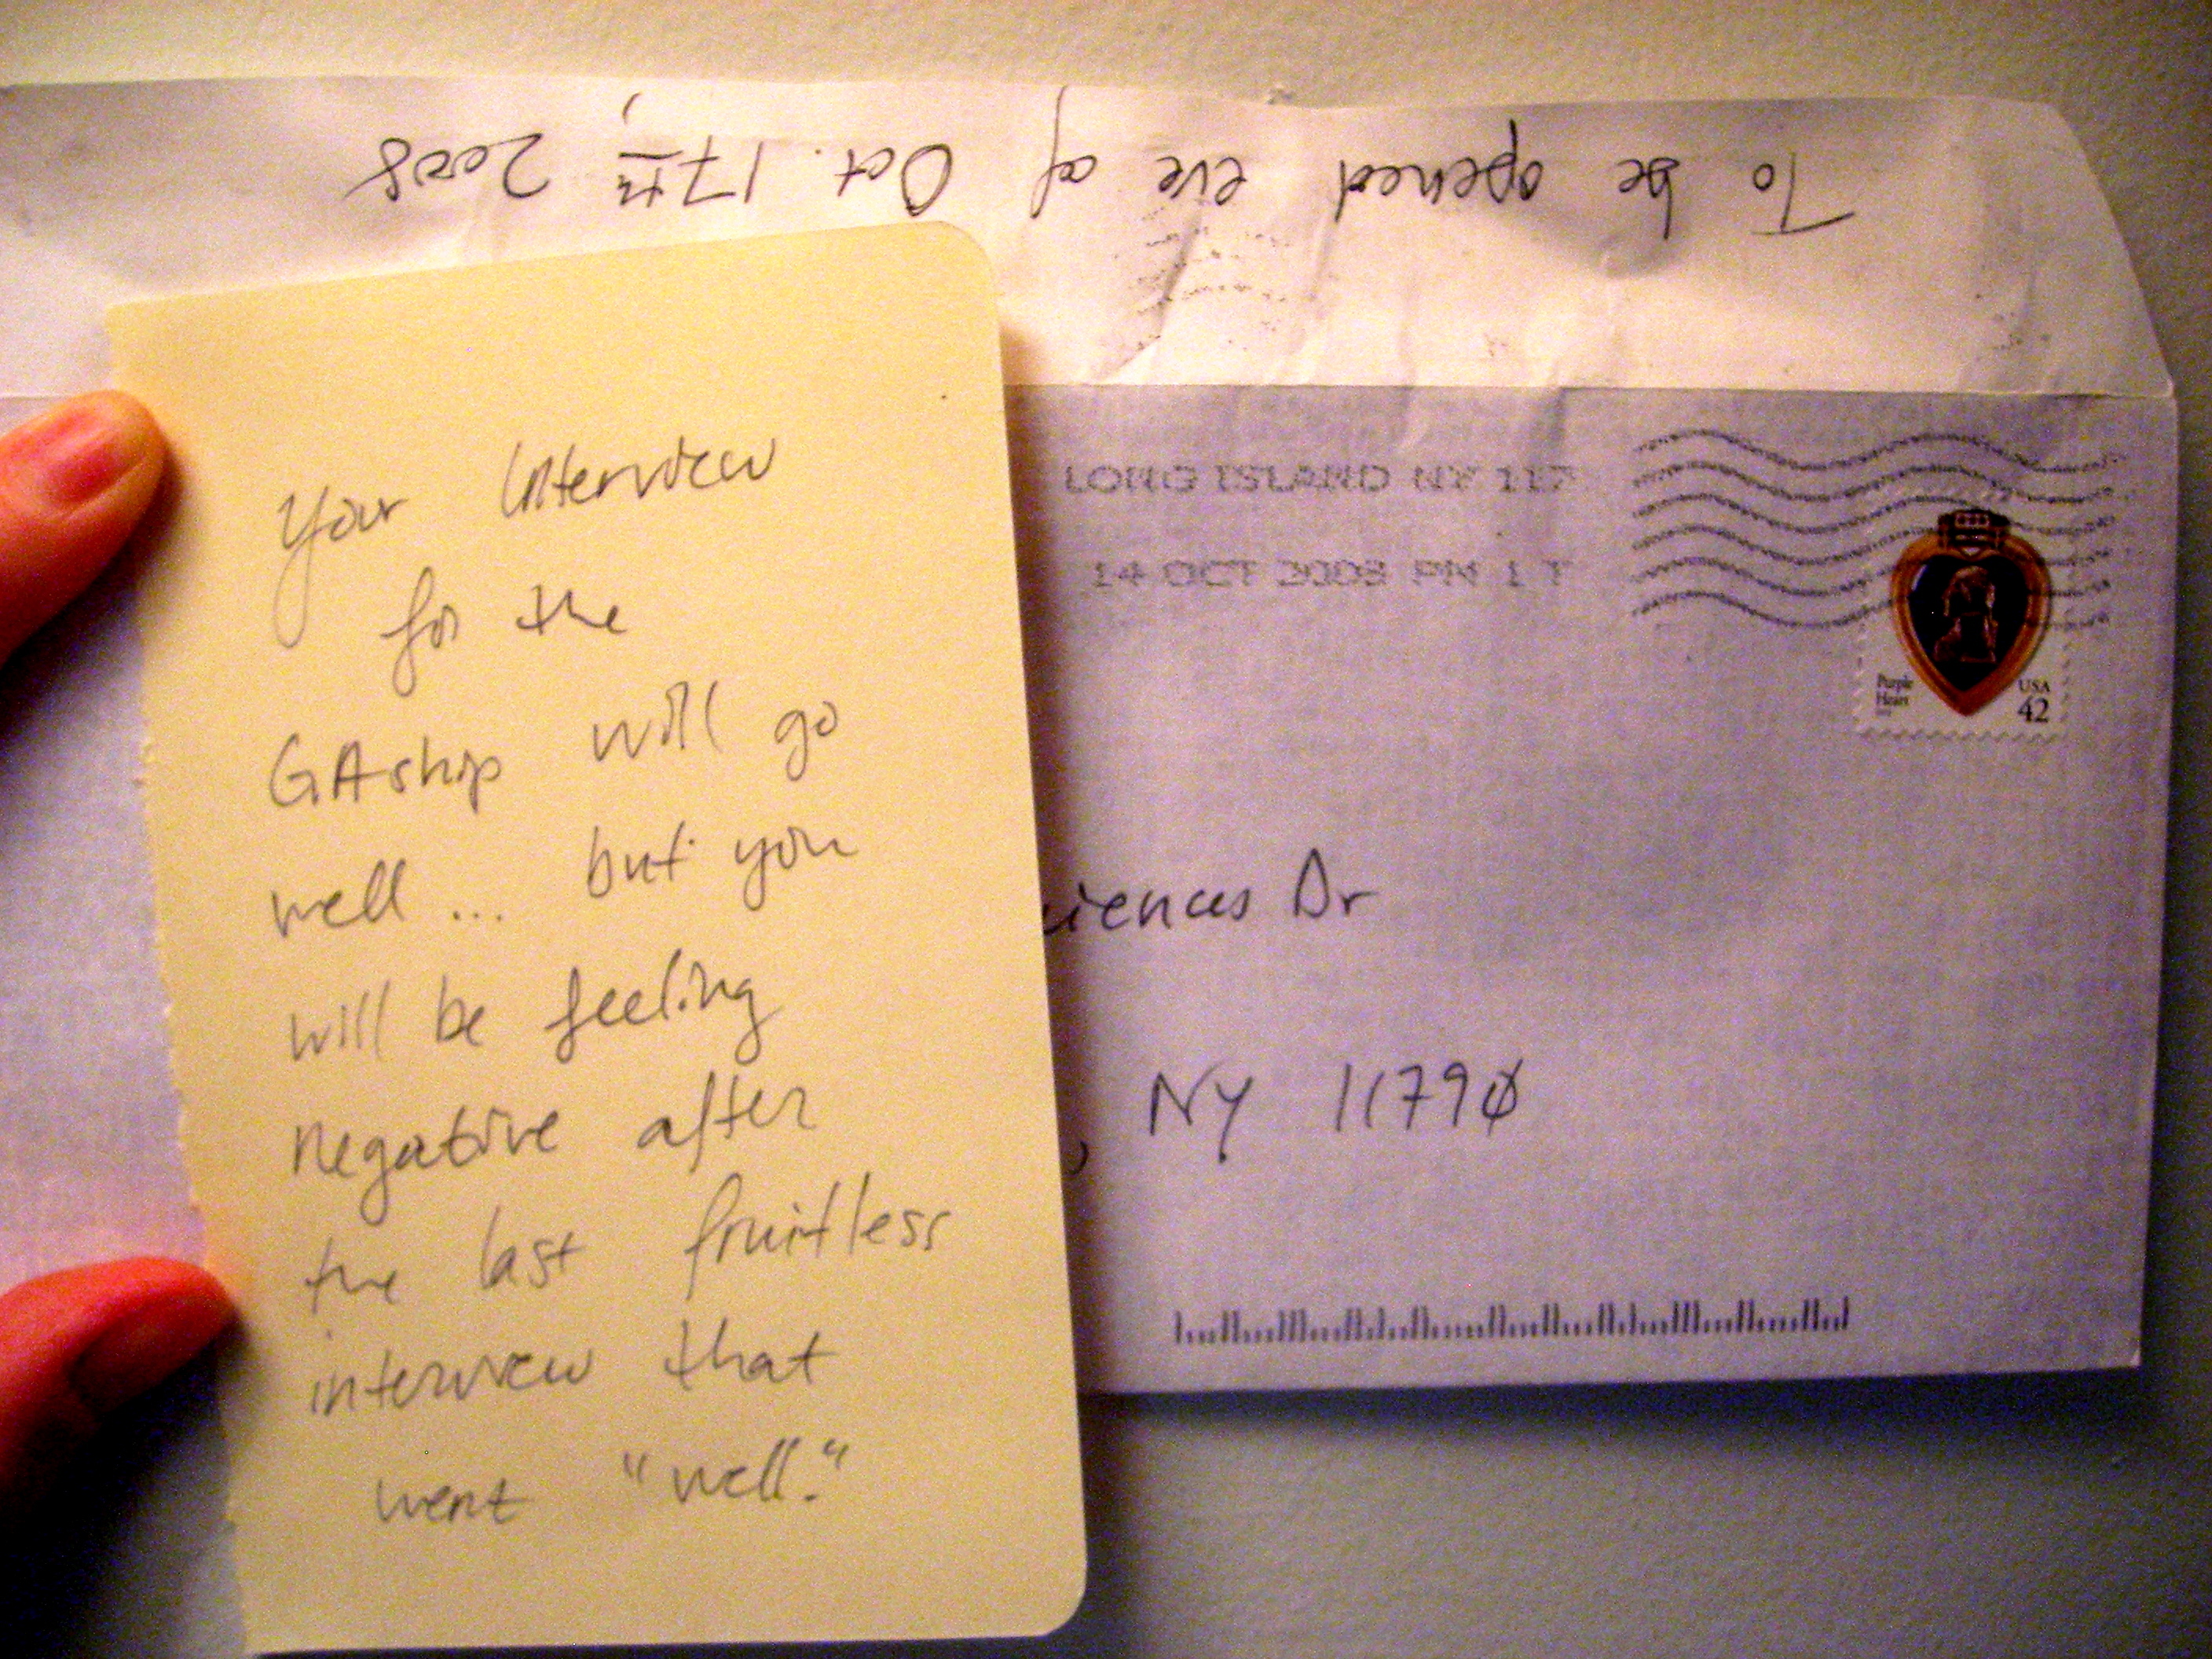 To be opened eve of Oct. 17th, 2008
Your Interview
for the
GAship will go
well... but you
will be feeling
negative after
the last fruitless
interview that
went "well."
LONG ISLAND NY 117
14 OCT 2008 PM 1 T
Purple
Heart
USA
42
Dr
, NY 11790